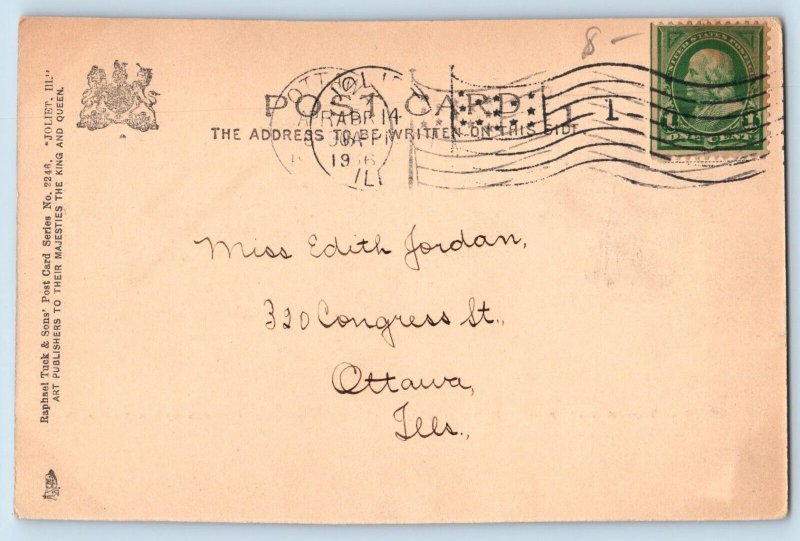 8 –
POST CARD.
THE ADDRESS TO BE WRITTEN ON THIS SIDE
APR 14
ILL
1
UNITED STATES POSTAGE
1 1
ONE CENT
Miss Edith Jordan,
320 Congress St.,
Ottawa,
Ills.,
Raphael Tuck & Sons' Post Card Series No. 2246. "JOLIET, Ill."
ART PUBLISHERS TO THEIR MAJESTIES THE KING AND QUEEN.